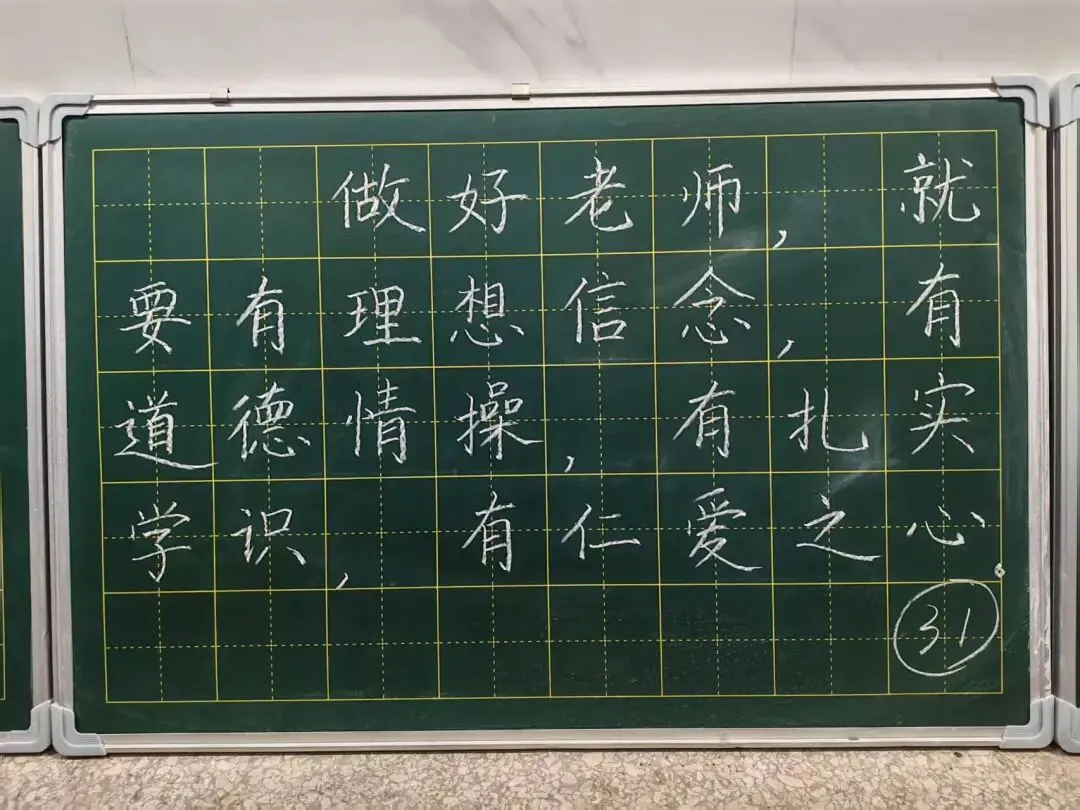 做好老师，就
要有理想信念，有
道德情操，有扎实
学识，有仁爱之心。
31